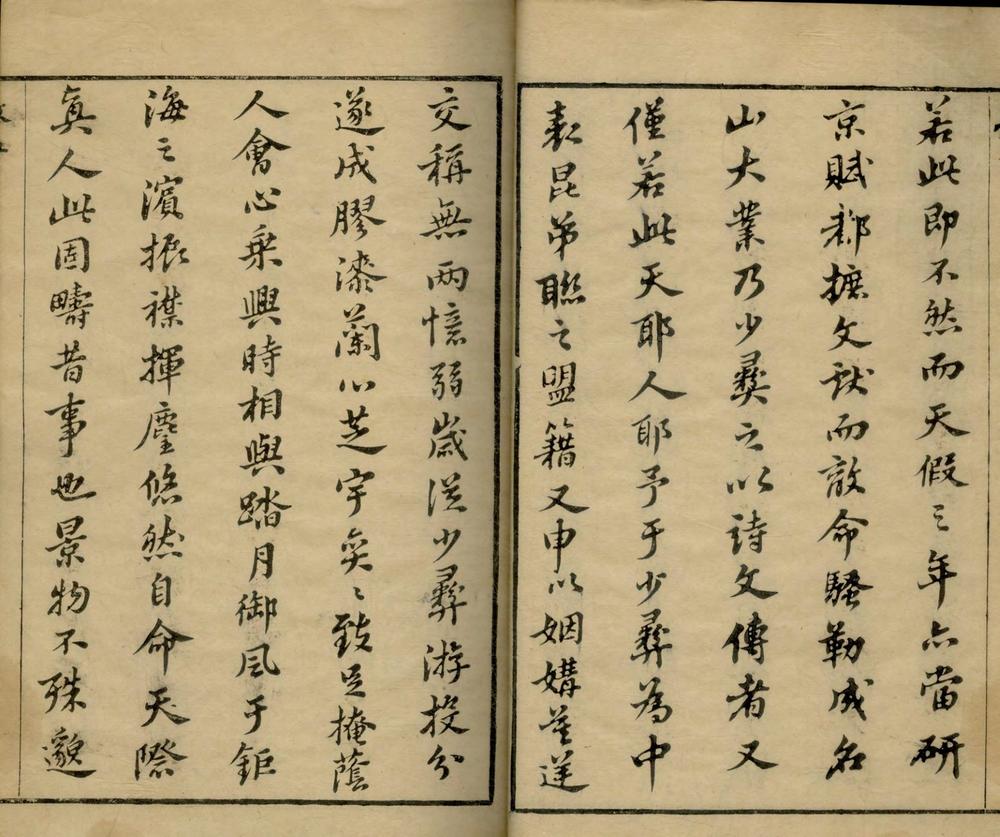 若此即不然而天假三年亦當研
京賦都摭文試而敵命騷勒成名
山大業乃少彞之以詩文傳者又
僅若此天耶人耶予于少彞為中
表昆弟聯之盟籍又申以姻媾莖逆
交稱無兩憶弱歲從少彞游投分
遂成膠漆蘭心芝宇奕〻致足掩蔭
人會心乗興時相與踏月御風于鉅
海之濵振襟揮麈悠然自命天際
真人此固疇昔事也景物不殊邈